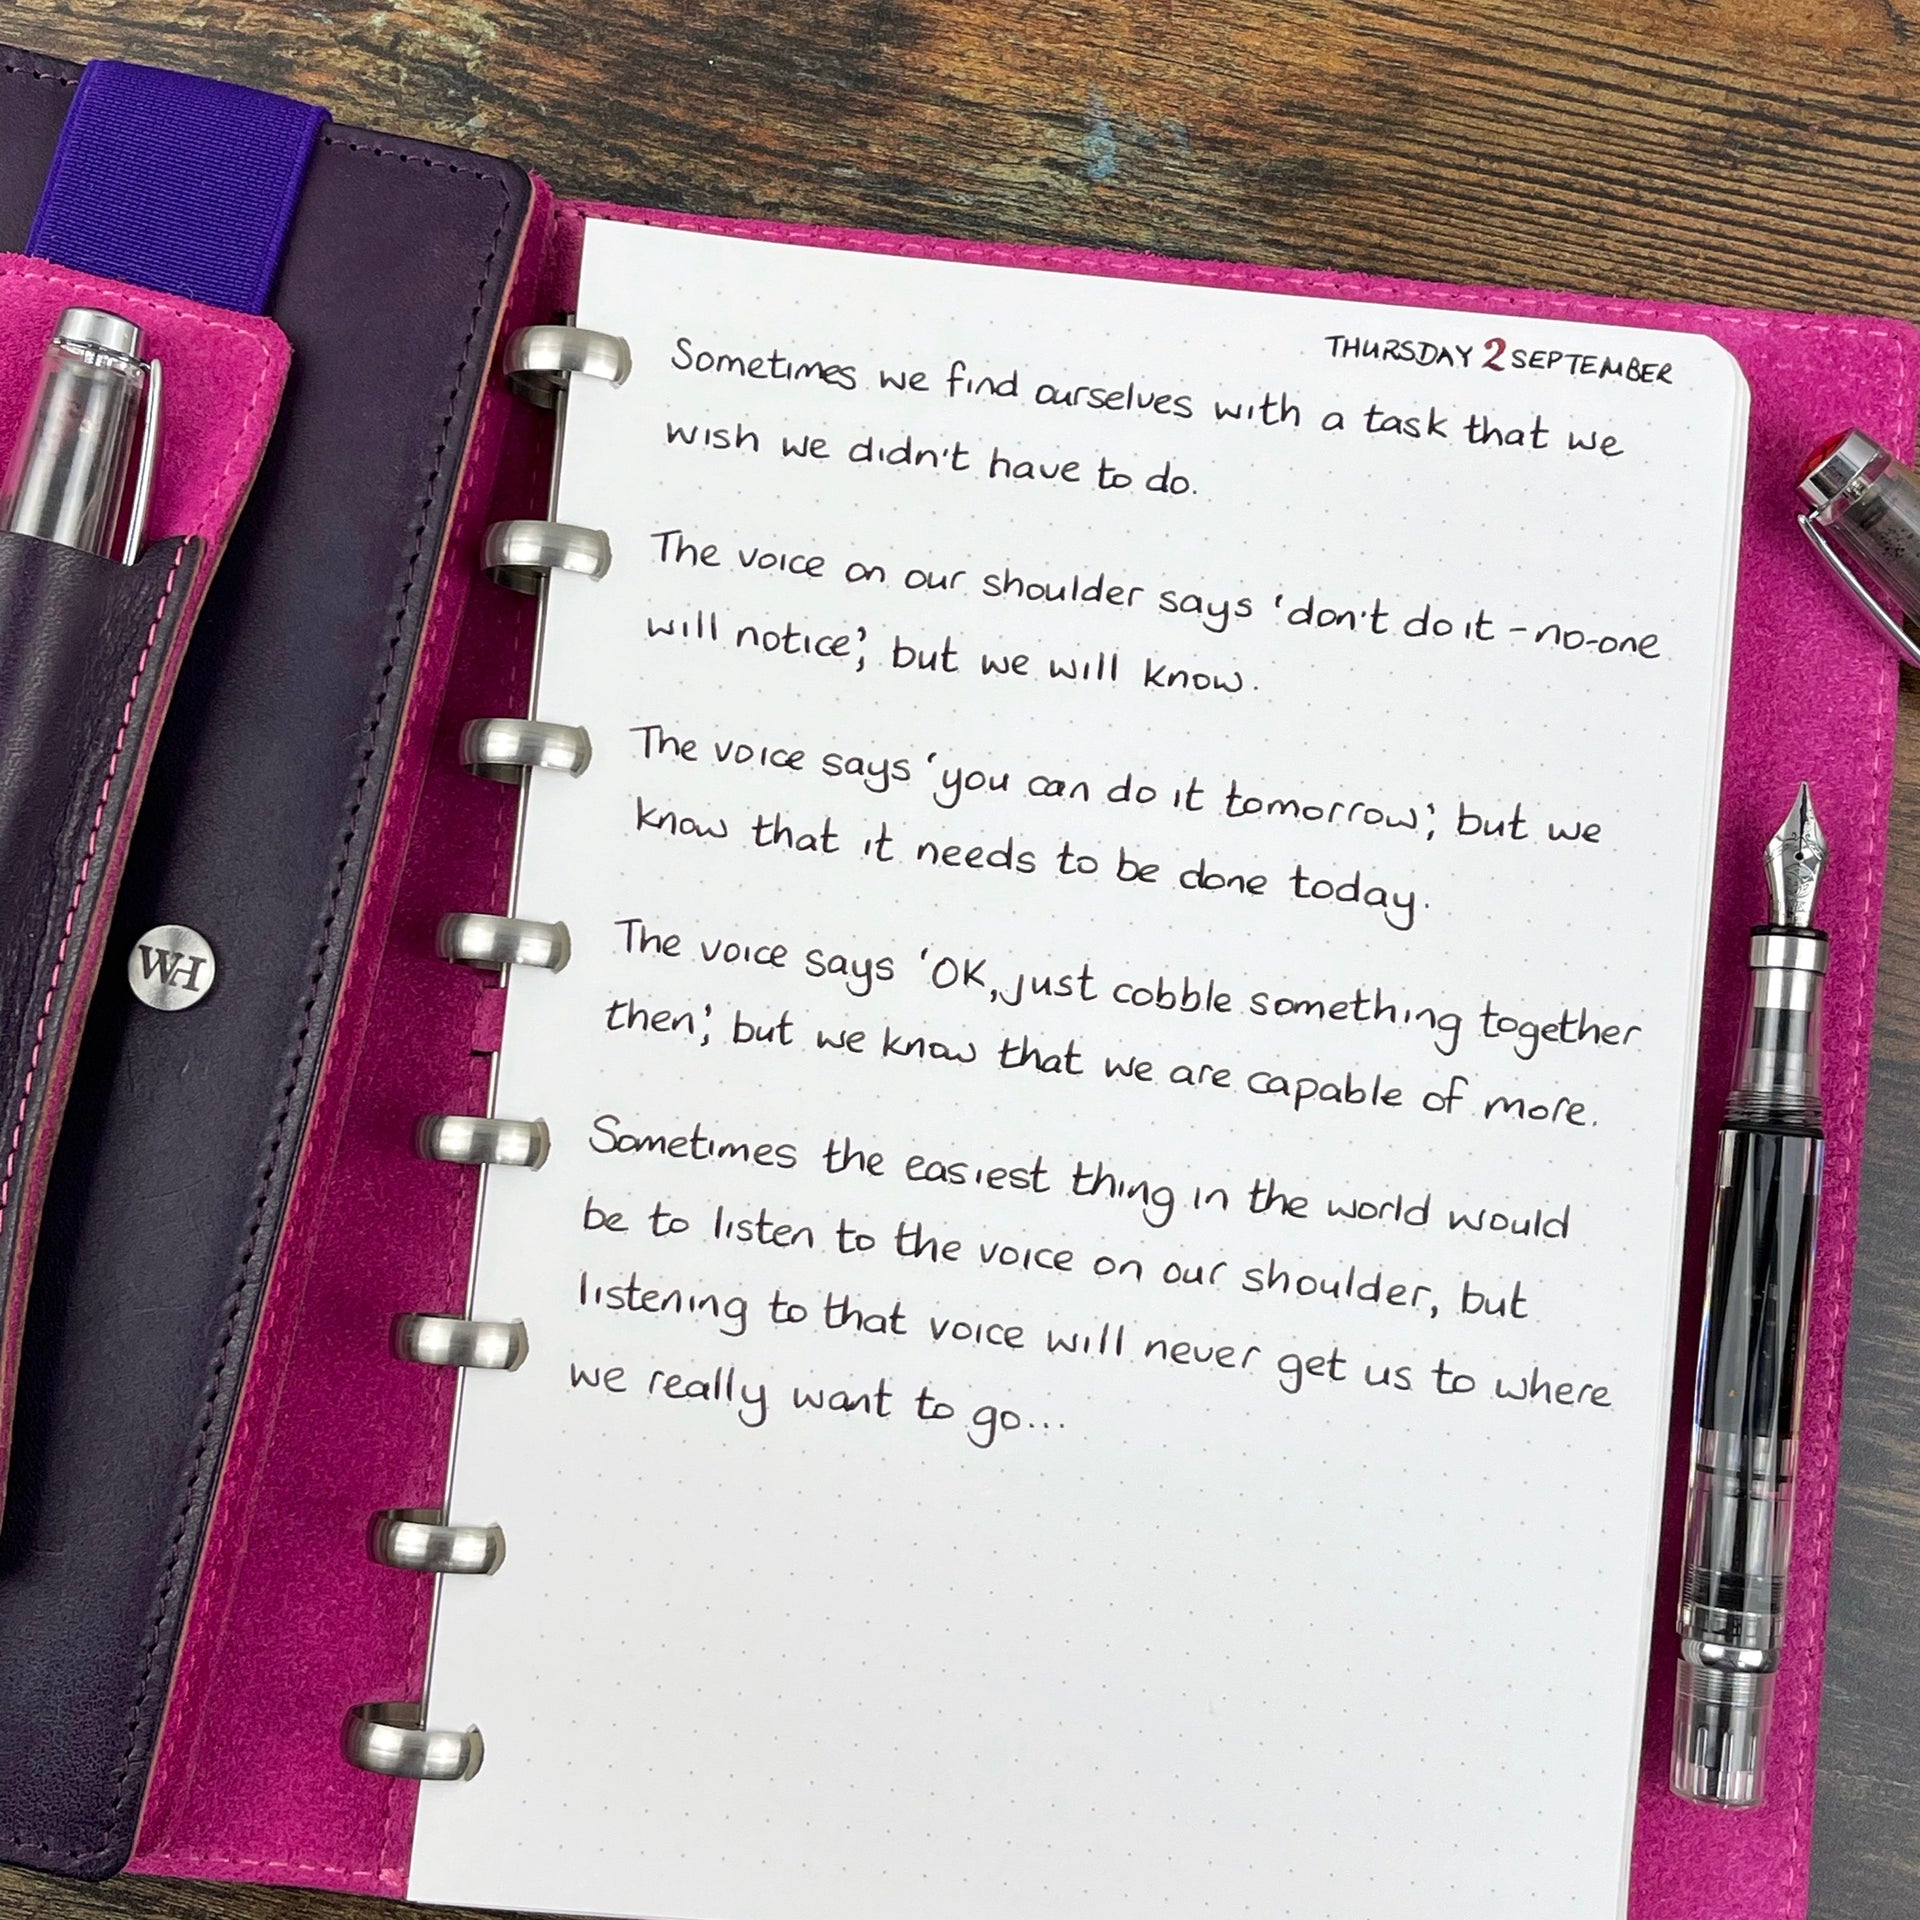 THURSDAY 2 SEPTEMBER
Sometimes we find ourselves with a task that we
wish we didn't have to do.
The voice on our shoulder says 'don't do it - no-one
will notice', but we will know.
The voice says 'you can do it tomorrow', but we
know that it needs to be done today.
The voice says 'OK, just cobble something together
then', but we know that we are capable of more.
Sometimes the easiest thing in the world would
be to listen to the voice on our shoulder, but
listening to that voice will never get us to where
we really want to go...
WH